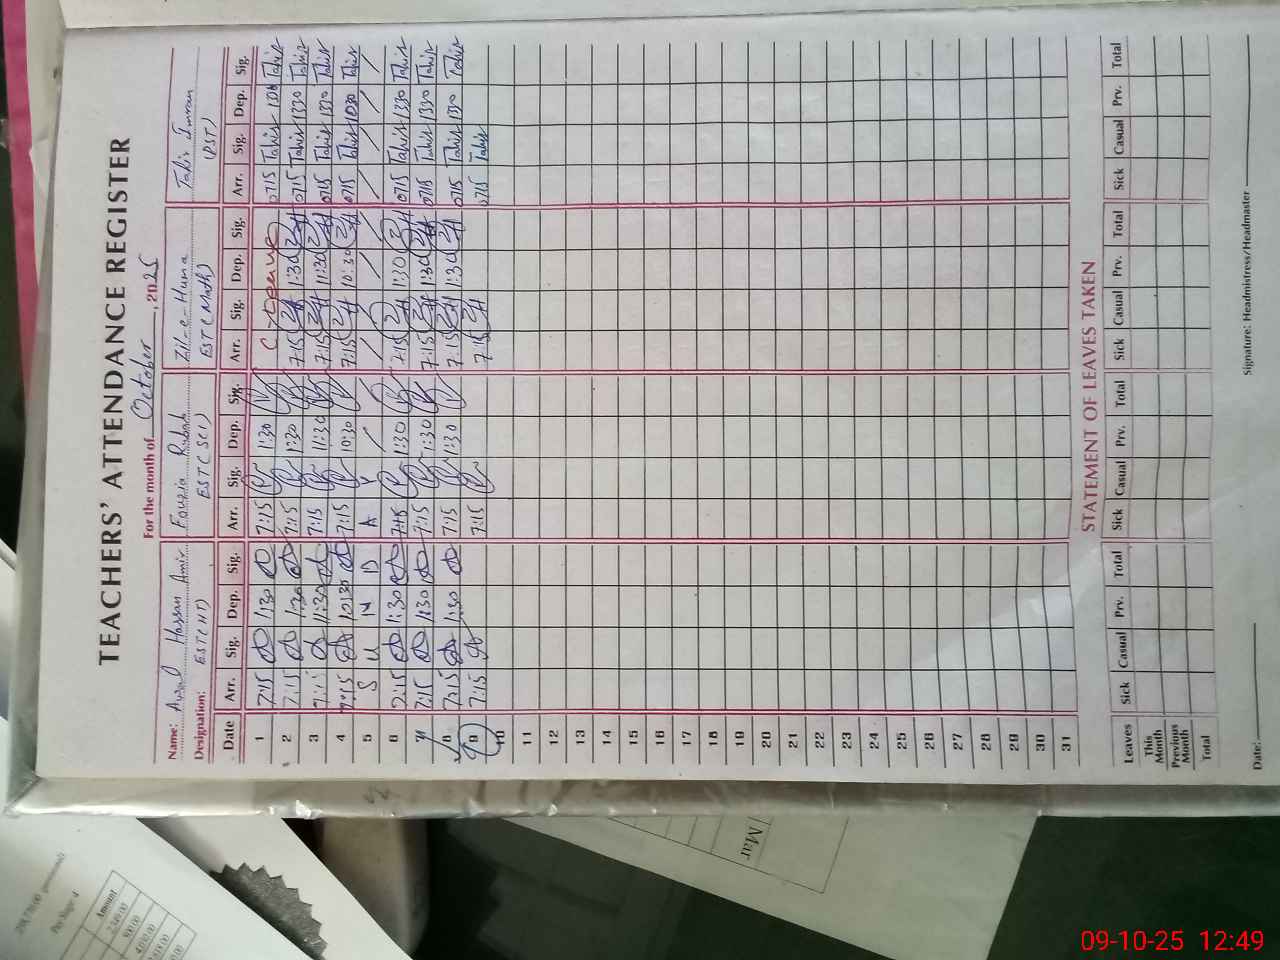 TEACHERS' ATTENDANCE REGISTER
For the month of October, 2025
Name: Hassan Amir Fouzia Rubab Zil-e-Huma Tahir Imran
Designation: EST(HT) EST(SCI) EST(Math) (PST)
Date Arr. Sig. Dep. Sig. Arr. Sig. Dep. Sig. Arr. Sig. Dep. Sig. Arr. Sig. Dep. Sig.
1 7:15 1:30 7:15 1:30 C. Leave 0715 Tahir Tahir
2 7:15 1:30 7:15 1:30 7:15 1:30 0715 Tahir 1330 Tahir
3 11:30 7:15 11:30 7:15 11:30 0715 Tahir 1330 Tahir
4 7:15 10:30 7:15 10:30 7:15 10:30 0715 Tahir 1030 Tahir
5 S U N D A Y
6 7:15 1:30 7:15 1:30 7:15 1:30 0715 Tahir 1330 Tahir
7 7:15 1:30 7:15 1:30 7:15 1:30 0715 Tahir 1330 Tahir
8 7:15 1:30 7:15 1:30 7:15 1:30 0715 Tahir 1330 Tahir
9 7:15 7:15 7:15 0715 Tahir
10
11
12
13
14
15
16
17
18
19
20
21
22
23
24
25
26
27
28
29
30
31
STATEMENT OF LEAVES TAKEN
Leaves Sick Casual Prv. Total Sick Casual Prv. Total Sick Casual Prv. Total Sick Casual Prv. Total
This Month
Previous Month
Total
Date: Signature: Headmistress/Headmaster
Mar
Pay Stage 4
Amount
09-10-25 12:49